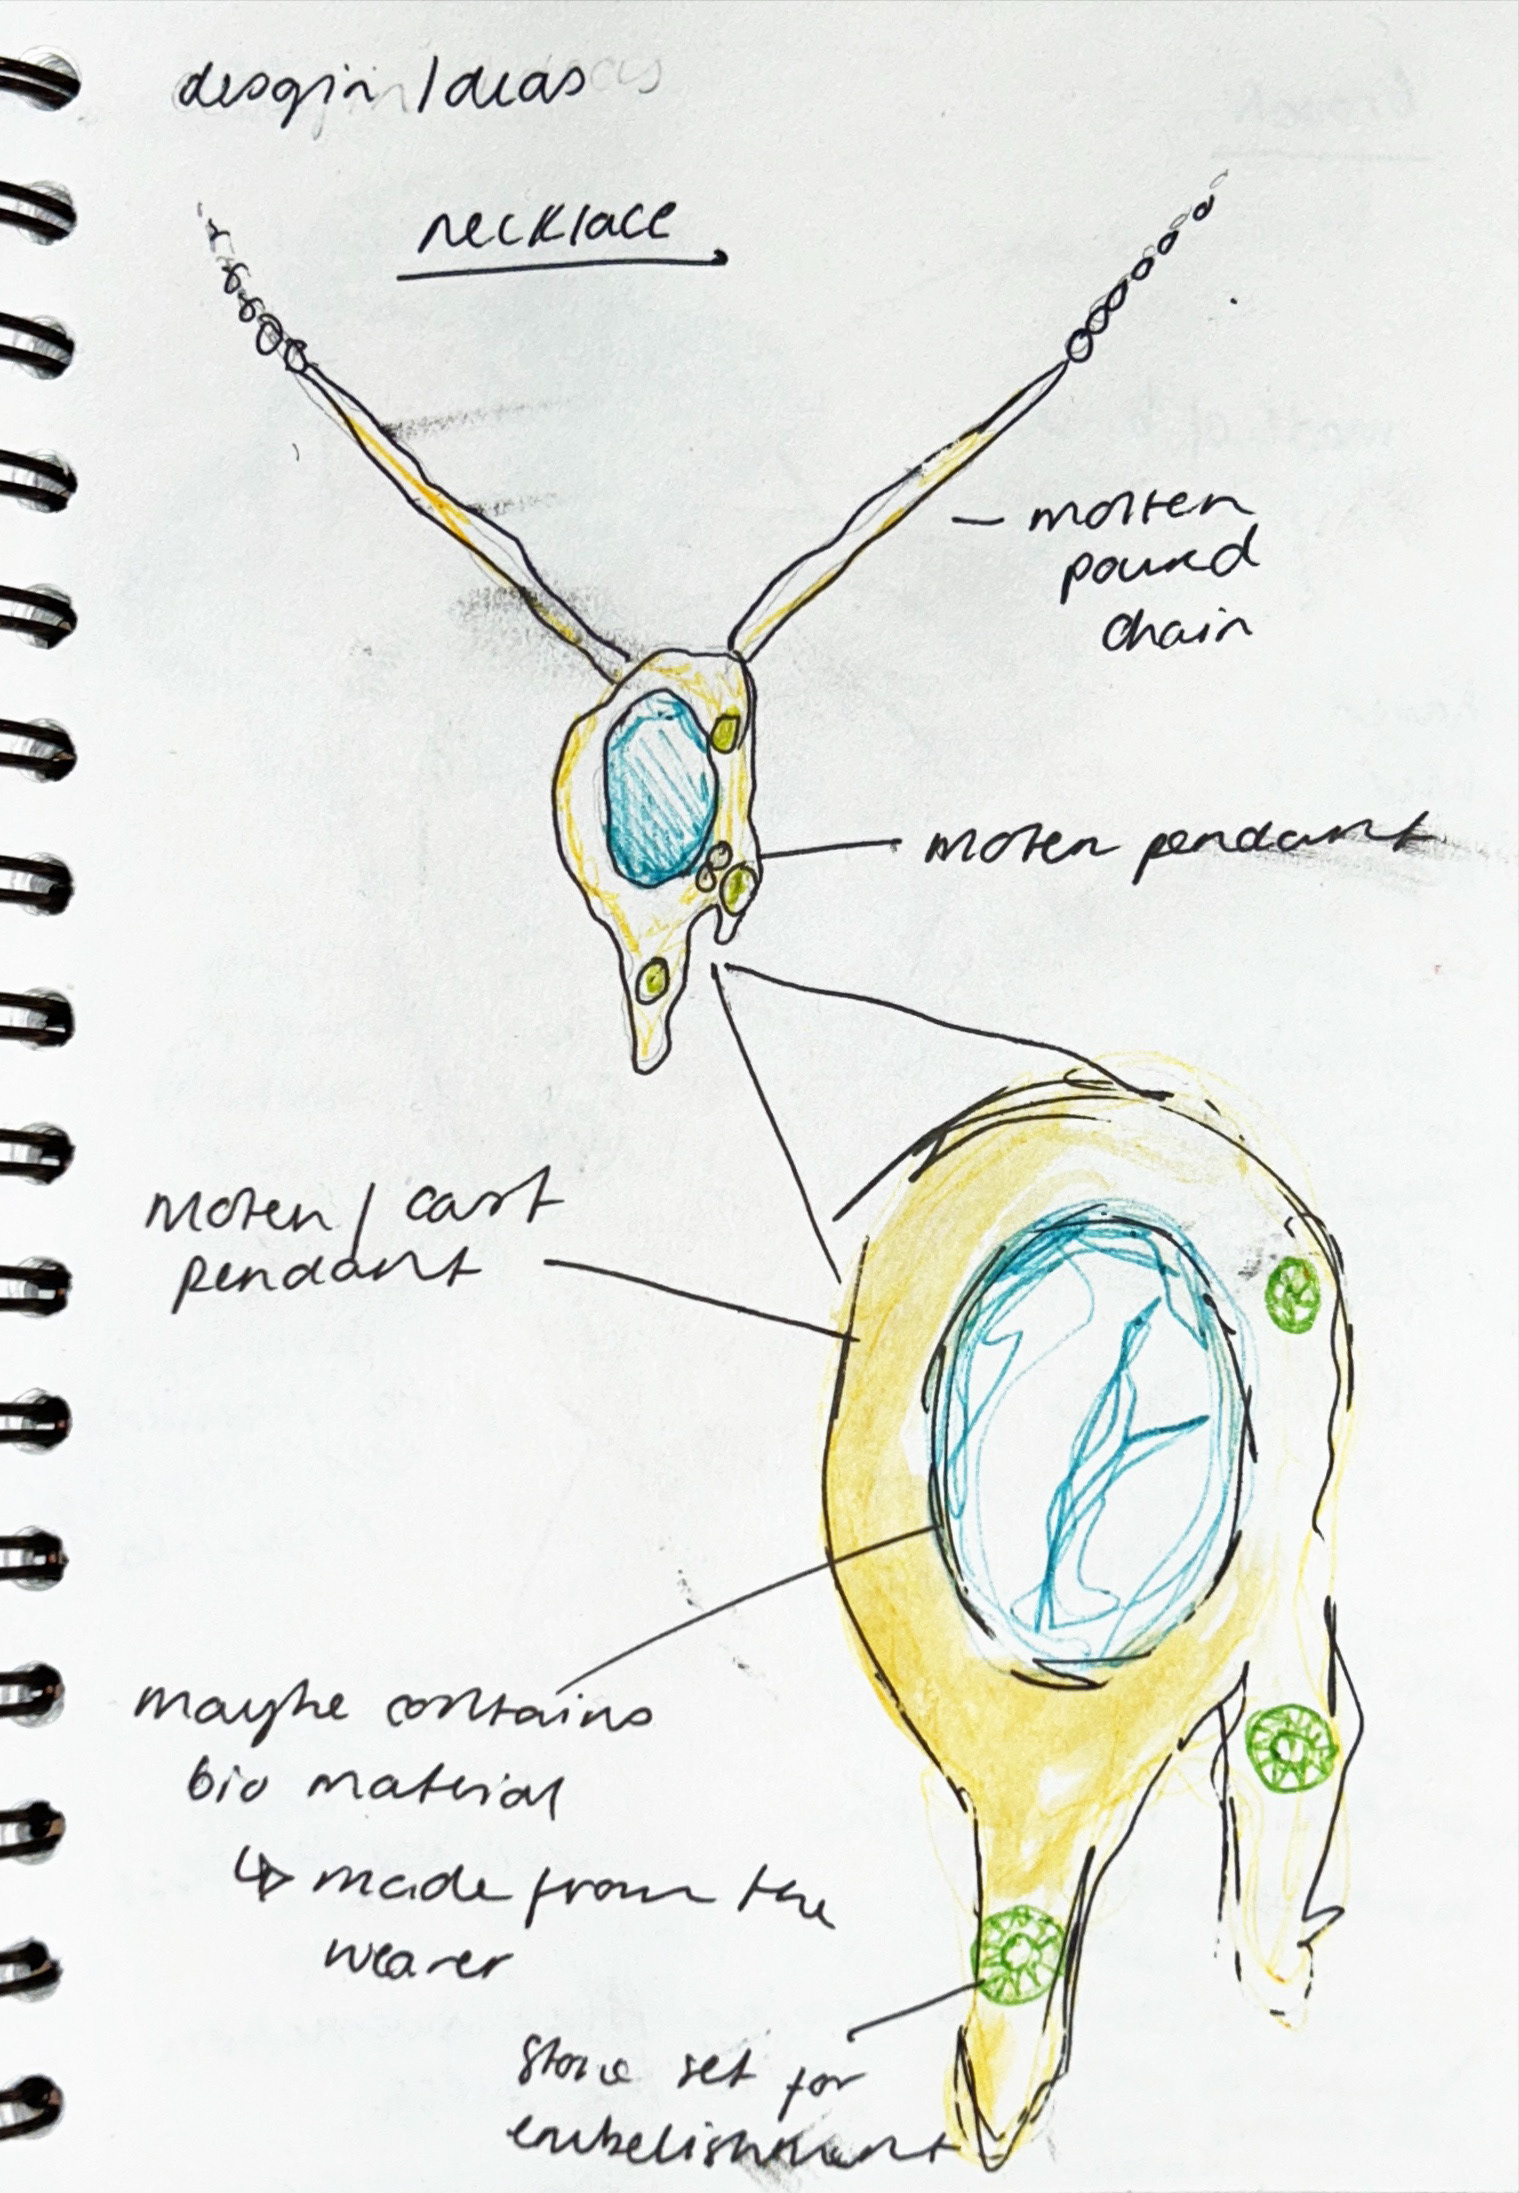 desgin Ideas
necklace
molten
poured
chain
molten pendant
molten / cast
pendant
maybe contains
bio material
↳ made from the
wearer
stone set for
embelishment